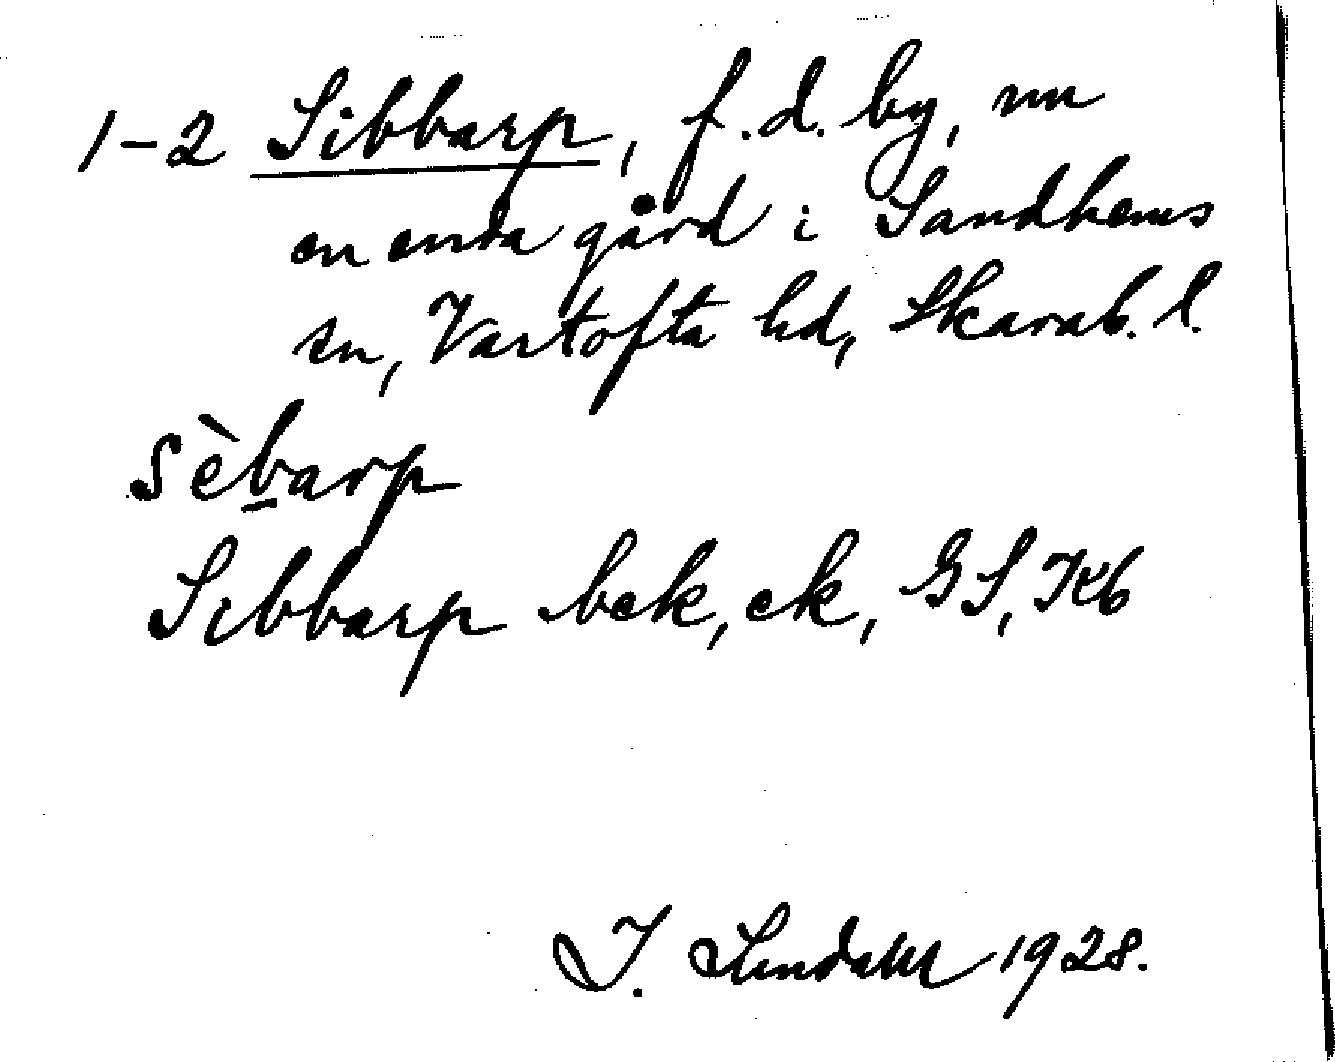 1-2 Sibbarp, f.d. by, nu
en enda gård i Sandhems
sn, Vartofta hd, Skarab. l.
sèbarp
Sibbarp bek, ek, GS, Kb
I. Lundahl 1928.